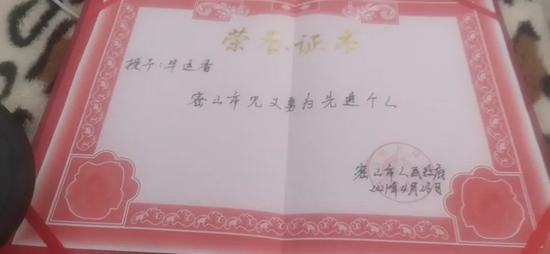 荣誉证书
授予:
密山市见义勇为先进个人
密山市人民政府
2021年4月